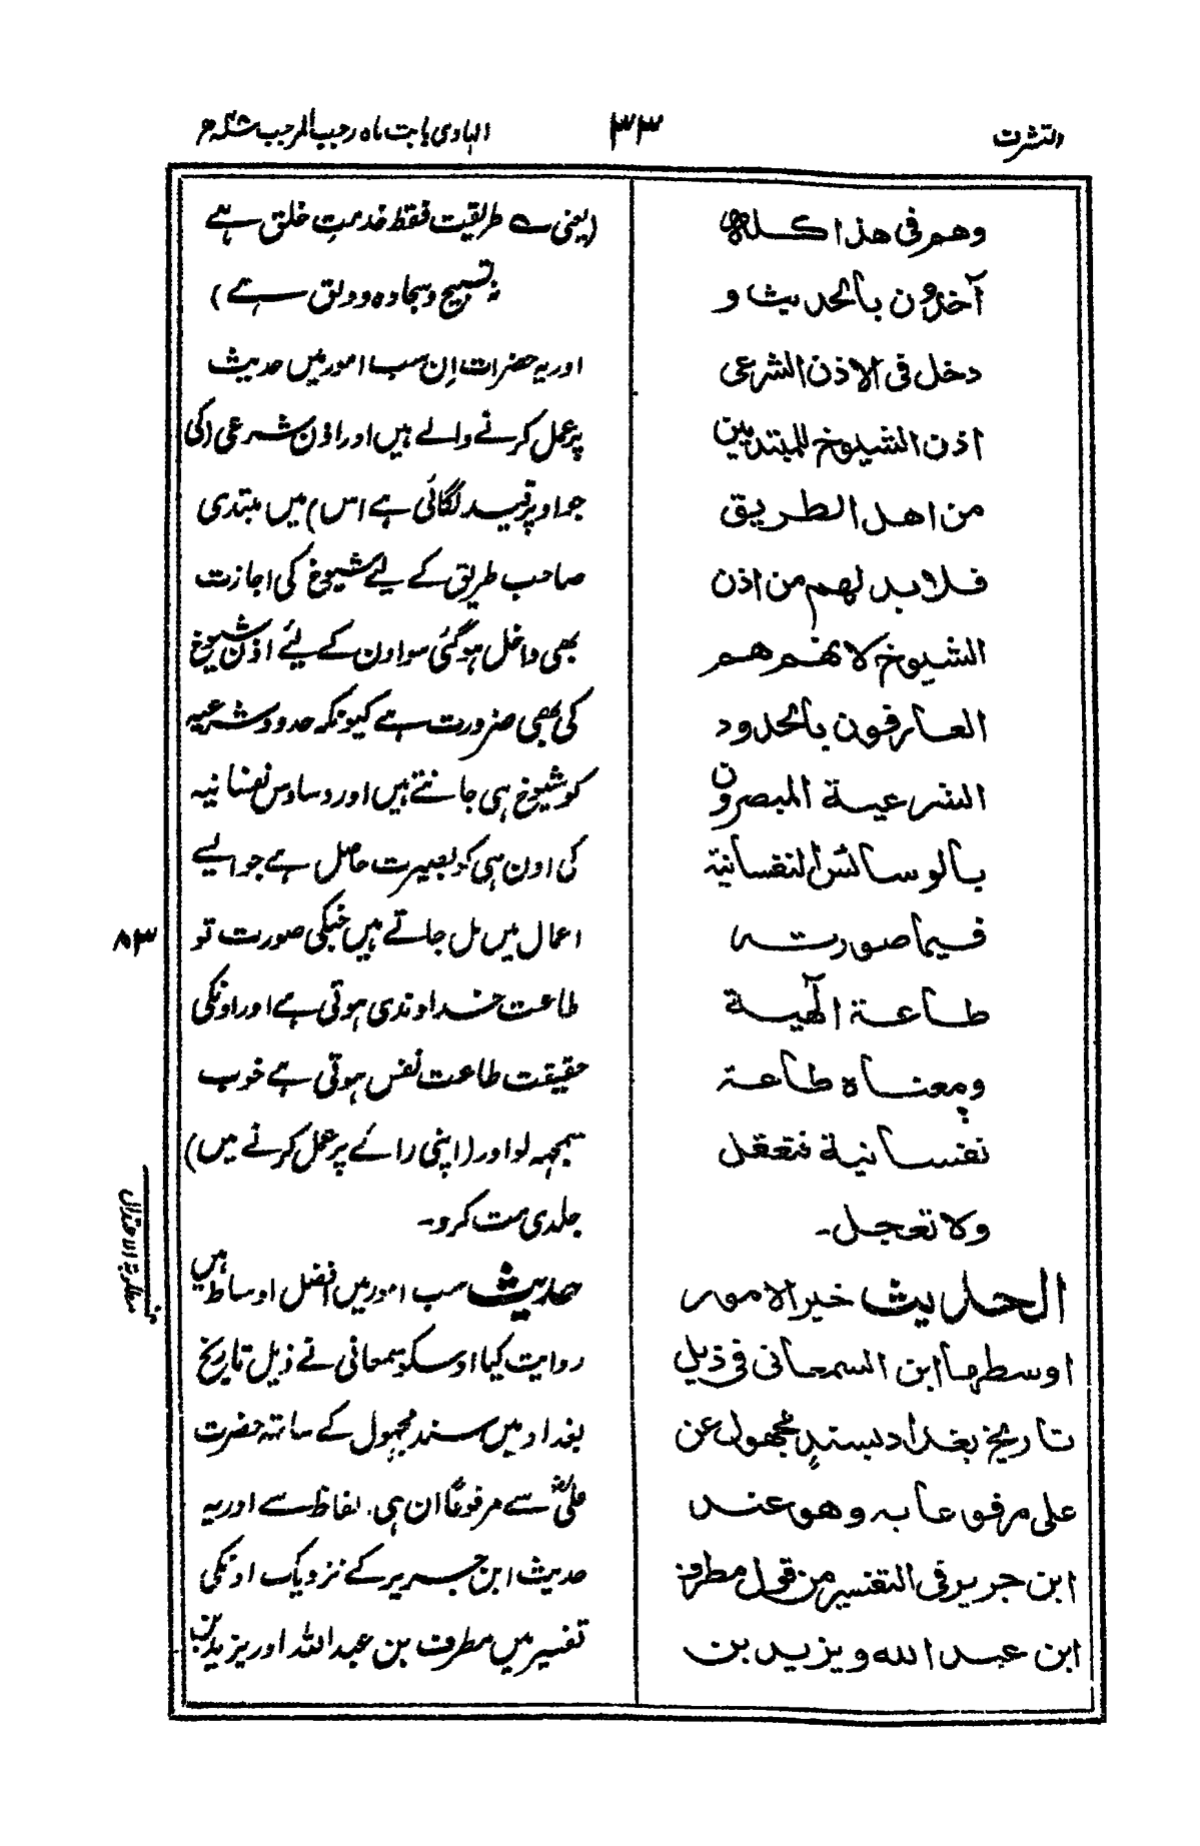 التشرف
٣٣
الہادی بابت ماہ رجب المرجب
وهم فی هذا کله
آخذون بالحدیث و
دخل فی الاذن الشرعی
اذن الشیوخ للمبتدیین
من اهل الطریق
فلابد لهم من اذن
الشیوخ لانهم هم
العارفون بالحدود
الشرعیة المبصرون
بالوسائس النفسانیة
فیما صورته
طاعة الٓهیة
ومعناه طاعة
نفسانیة فتعقل
ولا تعجل۔
الحدیث خیر الامور
اوسطها ابن السمعانی فی ذیل
تاریخ بغداد بسندٍ مجهول عن
علی مرفوعا به وهو عند
ابن جریر فی التفسیر من قول مطرف
ابن عبد الله ویزید بن
(یعنی ے طریقیت فقط خدمتِ خلق ہے
نہ تسبیح وسجادہ ودلق ہے)
اور یہ حضرات اِن سب امور میں حدیث
پر عمل کرنے والے ہیں اور اذن شرعی (کی
جو اوپر قید لگائی ہے اس) میں مبتدی
صاحب طریق کے لیے شیوخ کی اجازت
بھی داخل ہوگئی سو اون کے لیے اذن شیوخ
کی بھی ضرورت ہے کیونکہ حدود شرعیہ
کو شیوخ ہی جانتے ہیں اور وساوس نفسانیہ
کی اون ہی کو بصیرت حاصل ہے جو ایسے
اعمال میں مل جاتے ہیں جنکی صورت تو
طاعت خداوندی ہوتی ہے اور اونکی
حقیقت طاعت نفس ہوتی ہے خوب
سمجھہ لو اور (اپنی رائے پر عمل کرنے میں)
جلدی مت کرو۔
حدیث سب امور میں افضل اوساط ہیں
روایت کیا اوسکو سمعانی نے ذیل تاریخ
بغداد میں سند مجہول کے ساتہہ حضرت
علیؓ سے مرفوعًا ان ہی الفاظ سے اور یہ
حدیث ابن جریر کے نزدیک اونکی
تفسیر میں مطرف بن عبداللہ اور یزید بن
٨٣
مطلوبیة الاعتدال